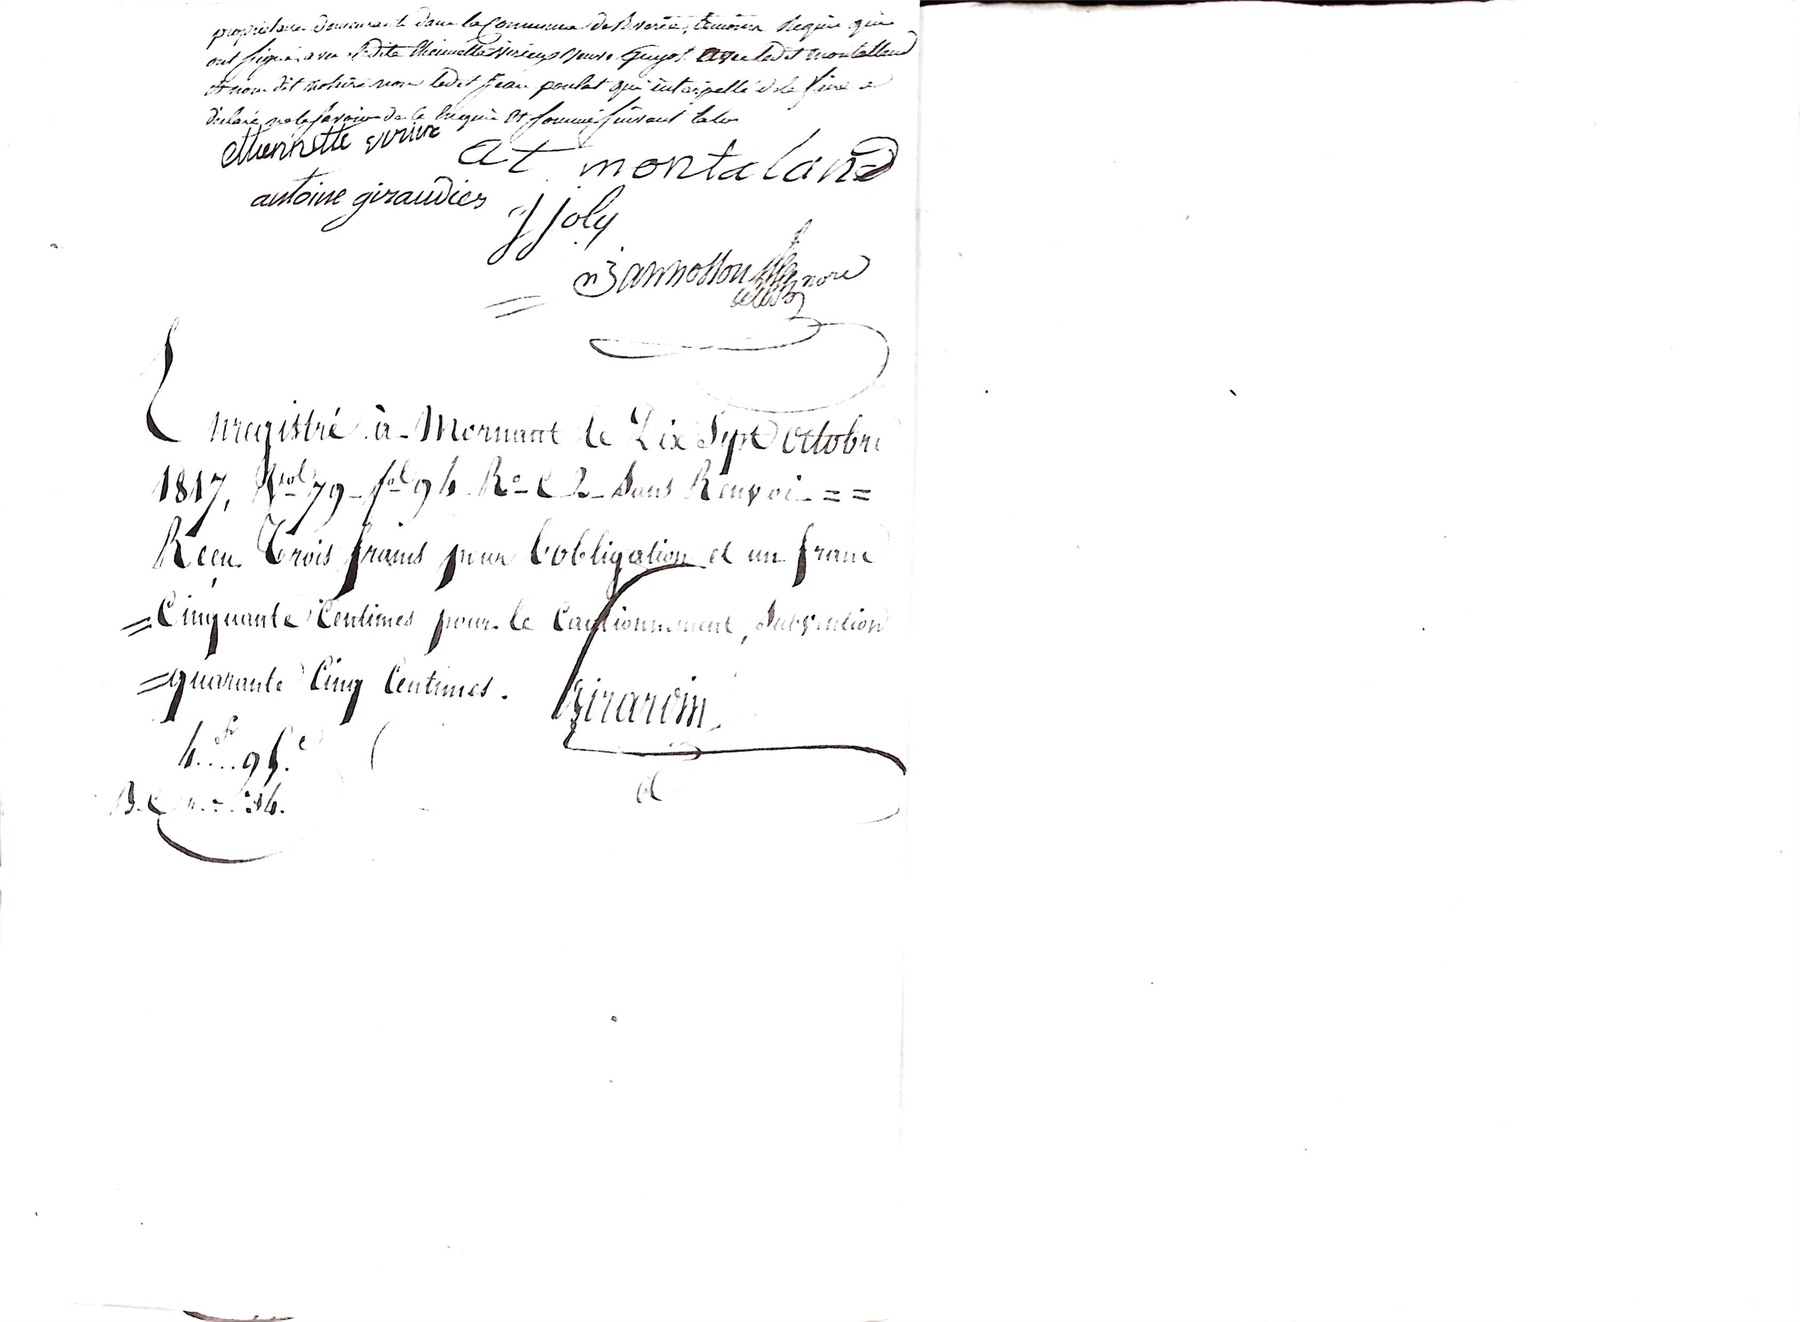 propriétaire demeurant dans la Commune de Riverie, témoins Requis qui
ont signé avec ladite thiennette virieux veuve Guyot avec ledit montalland
et nous dit notaire non ledit jean poulat qui interpellé de le fire a
déclaré ne le savoir de ce Requis et sommé suivant la loi
at montaland
antoine giraudier
j joly
nore
Enregistré à Mornant le Dix Sept octobre
1817, Vol 79 fol 94 Ro C 2 Sans Renvoi = =
Reçu Trois francs pour l'obligation et un franc
= Cinquante Centimes pour le Cautionnement, Subvention
= quarante Cinq Centimes.
Girardin
4 fr .... 95 c